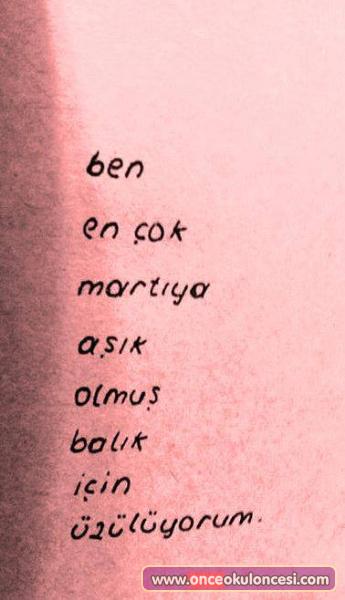 ben
en çok
martıya
aşık
olmuş
balık
için
üzülüyorum.
www.onceokuloncesi.com